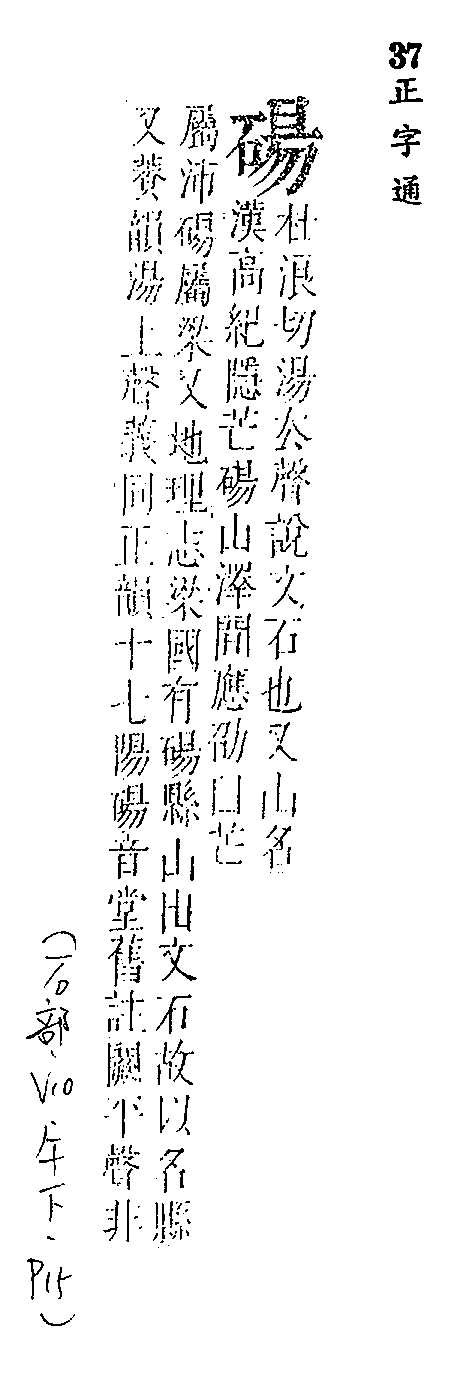 37正字通
碭
杜浪切湯去聲說文文石也又山名
漢高紀隱芒碭山澤間應劭曰芒
屬沛碭屬梁又地理志梁國有碭縣山出文石故以名縣
又養韻湯上聲義同正韻十七陽碭音堂舊註闕平聲非
(石部、V10、午下、P15)